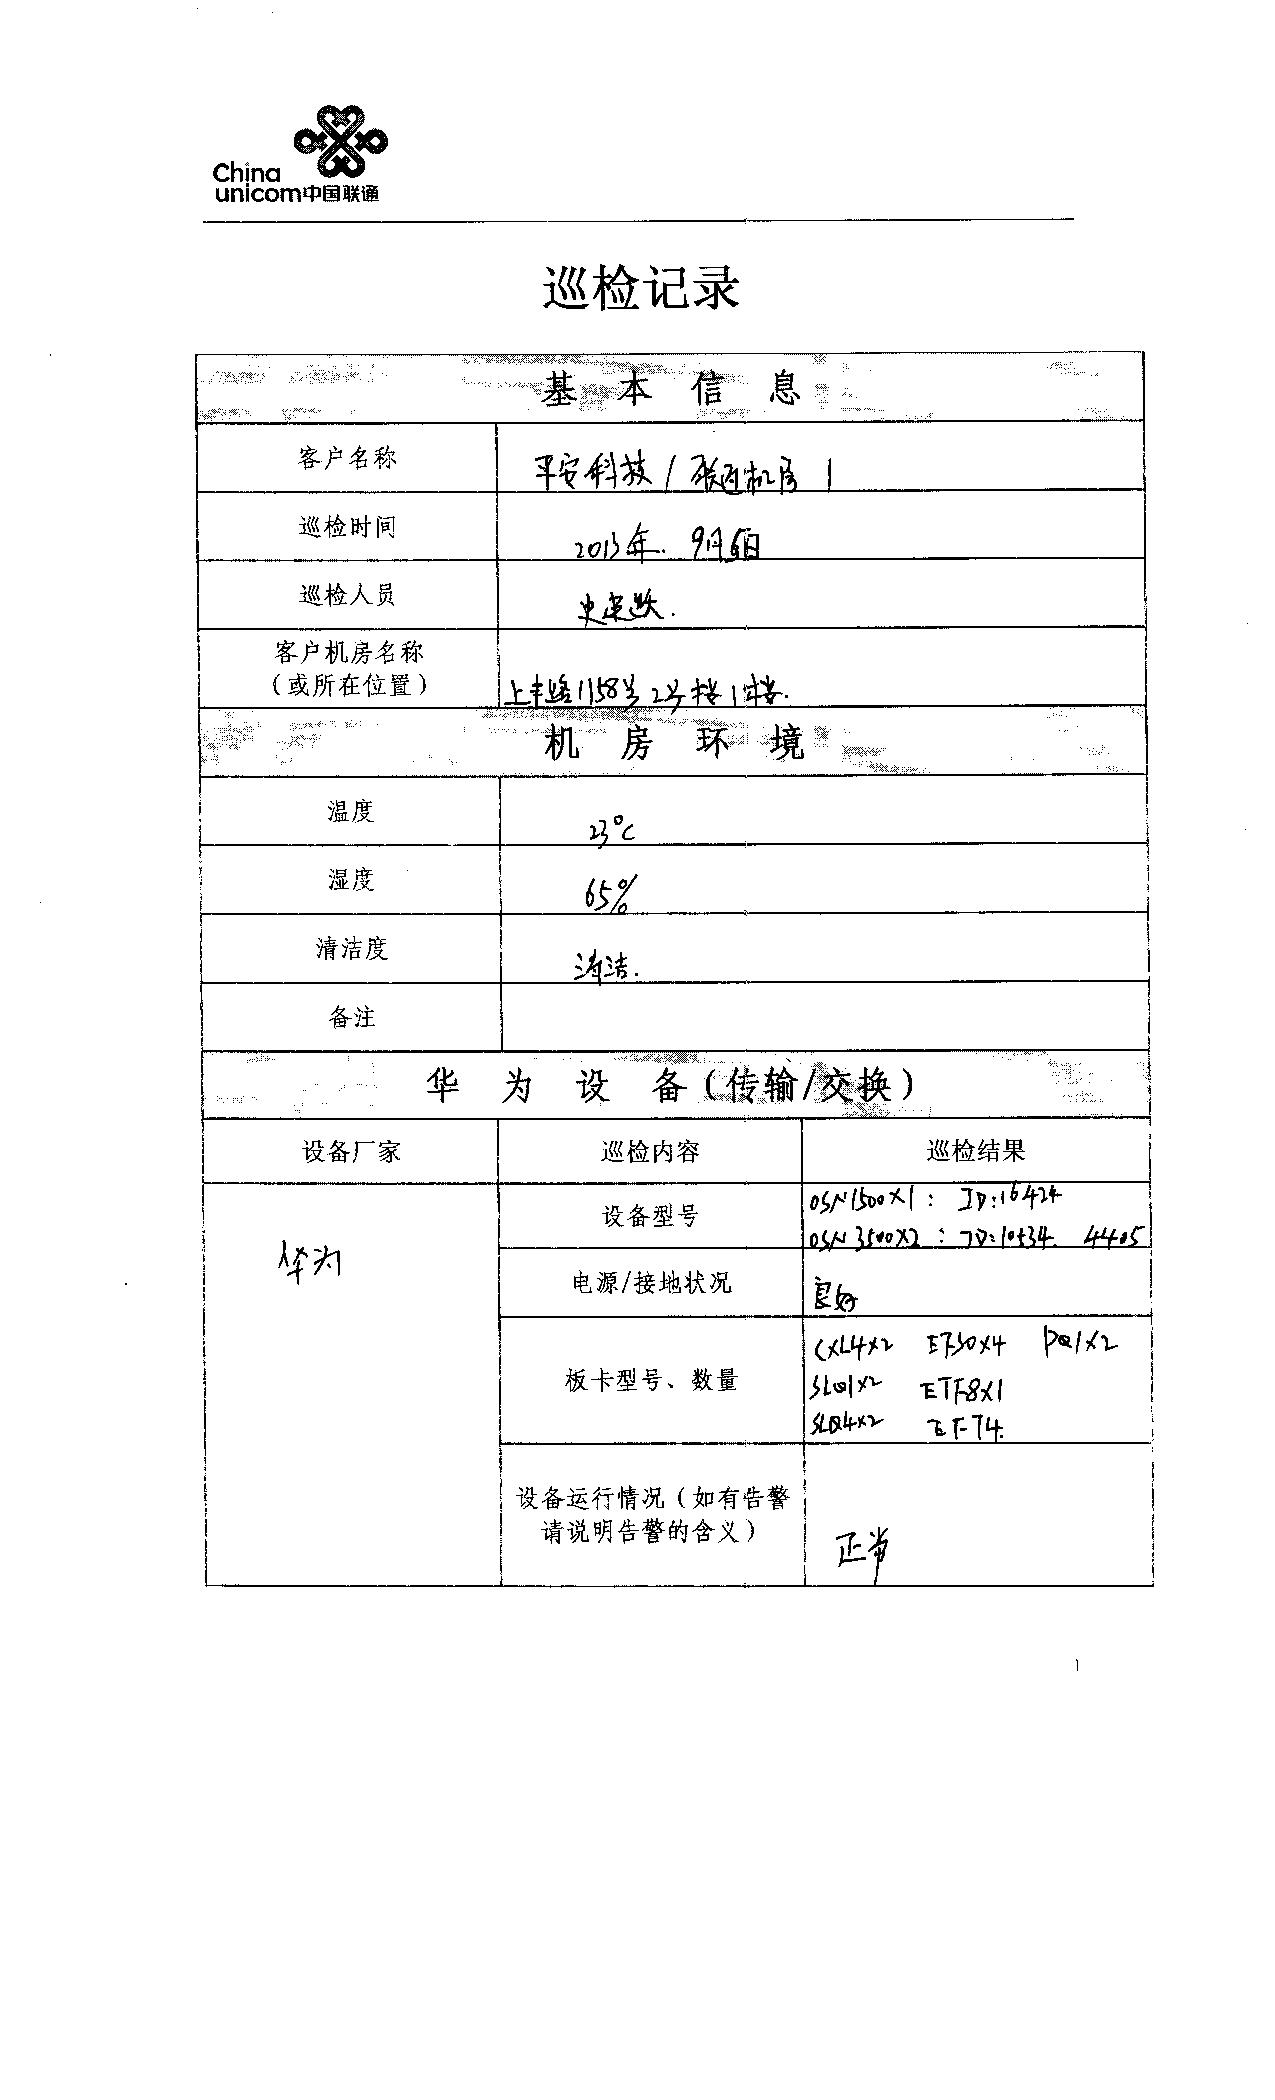 China
unicom中国联通
巡检记录
基 本 信 息
客户名称 平安科技 / 联通机房 1
巡检时间 2013年. 9月6日
巡检人员 史
客户机房名称
(或所在位置) 上丰路1158号2号楼1楼.
机 房 环 境
温度 23°C
湿度 65%
清洁度 清洁.
备注
华 为 设 备(传输/交换)
设备厂家 巡检内容 巡检结果
华为
设备型号 OSN1500×1: ID:16424
OSN 3500×2: ID:10534. 4405
电源/接地状况 良好
板卡型号、数量 CXL4×2 EFS0×4 PQ1×2
SLQ1×2 ETF8×1
SLQ4×2 EFT4.
设备运行情况(如有告警
请说明告警的含义) 正常
1